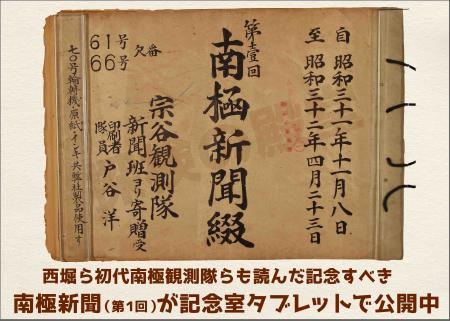 自 昭和三十一年十一月八日
至 昭和三十二年四月二十三日
第壹回
南極新聞綴
宗谷観測隊
新聞班ヨリ寄贈受
印刷者
隊員 戸谷 洋
欠番
61号
66号
七〇号輪轉機・原紙・インキ共堀井社製品使用す
西堀ら初代南極観測隊らも読んだ記念すべき
南極新聞(第1回)が記念室タブレットで公開中